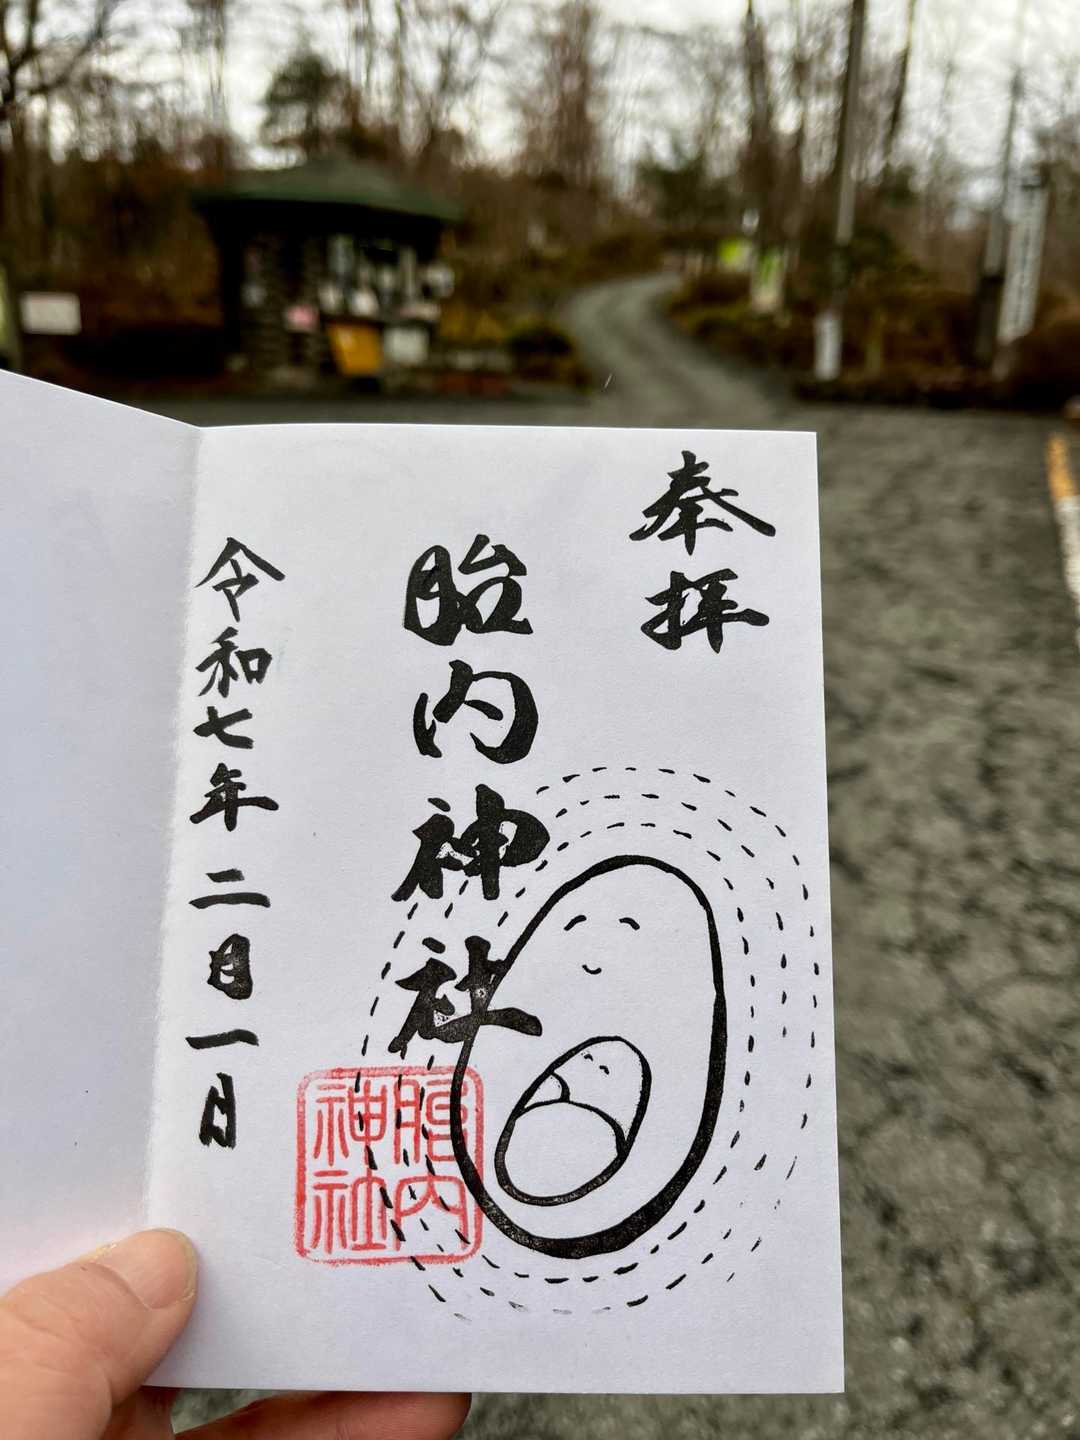 奉拝
胎内神社
令和七年二月一日
胎内
神社